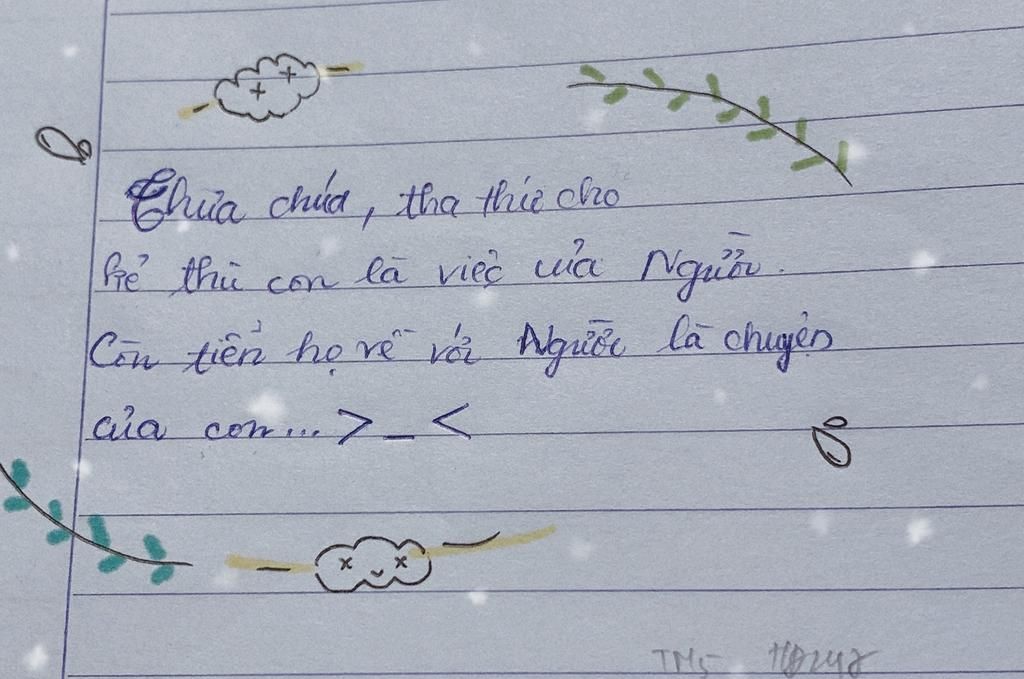 Thưa chúa, tha thứ cho
kẻ thù con là việc của Người.
Còn tiễn họ về với Người là chuyện
của con... >_<